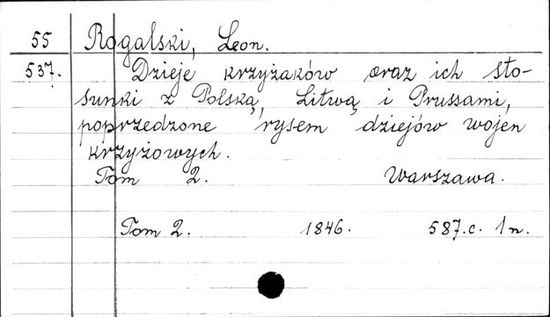 55 Rogalski, Leon.
537. Dzieje krzyżaków oraz ich sto-
sunki z Polską, Litwą i Prussami,
poprzedzone rysem dziejów wojen
krzyżowych.
Tom 2. Warszawa.
Tom 2. 1846. 587.c. 1n.